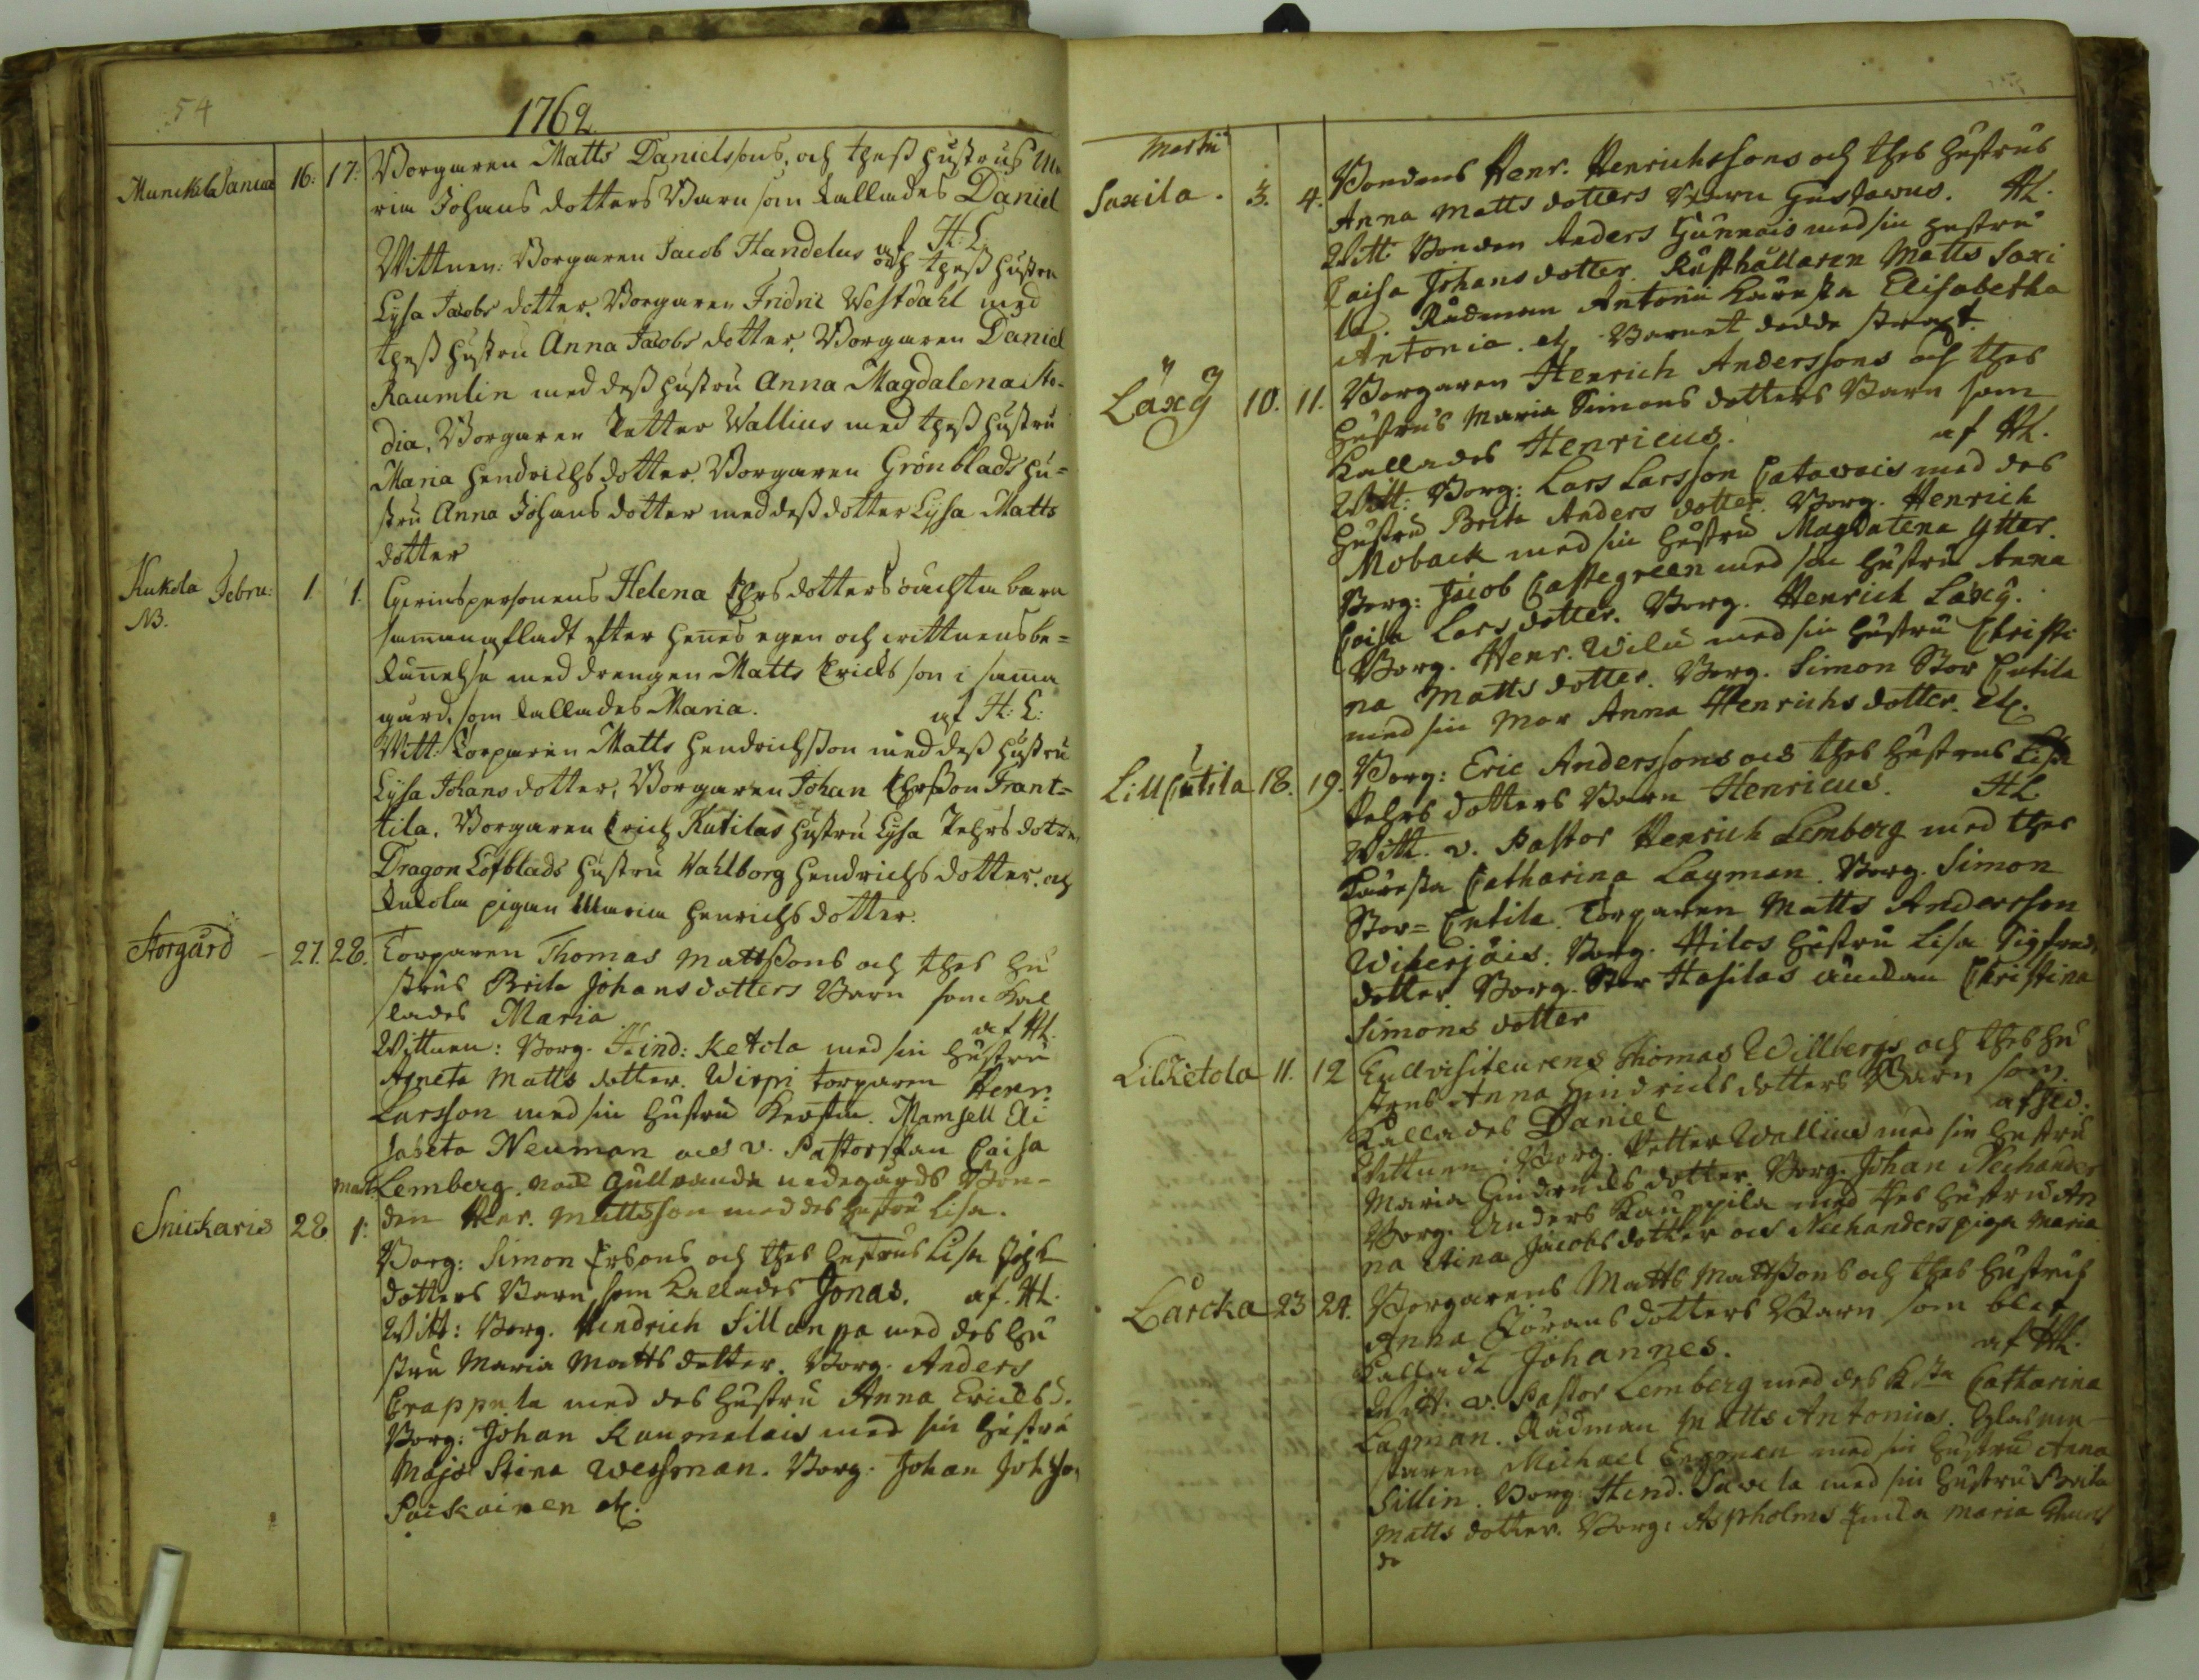 54
1762
Munckila Januar 16. 17. Borgaren Matts Danielssons, och thess hustrus Ma
ria Johans dotters Barn som kallades Daniel
af H: L.
Wittnen: Borgaren Jacob Handelus och thess hustru
Lysa Jacobs dotter. Borgaren Fridric Westdahl med
thess hustru Anna Jacobs dotter, Borgaren Daniel
Raumlin med dess hustru Anna Magdalena Ste-
dia, Borgaren Petter Wallius med thess hustru
Maria Hendrichs dotter. Borgaren Grönblads hu-
stru Anna Johans dotter med dess dotter Lysa Matts
dotter
Kukola Febru: 1. 1. Qvinspersonens Helena Ehrs dotters oächta barn
NB. samanafladt efter henes egen och wittnens be-
kännelse med drengen Matts Ericksson i sama
gård, som kallades Maria. af H: L:
Witt: Torparen Matts Hendrichsson med dess hustru
Lysa Johans dotter, Borgaren Johan Ehrsson Frant-
tila. Borgaren Erich Kutilas hustru Lysa Pehrs dotter,
Dragon Löfblads hustru Wahlborg Hendrichs dotter. och
Kukola pigan Maria Henrichs dotter.
Storgård - 27. 28. Torparen Thomas Mattssons och thes hu
strus Brita Johans dotters Barn som kal
lades Maria af HL.
Wittnen: Borg. Hind: Ketola med sin hustru
Agneta Matts dotter. Wirpi torparen Henr.
Larsson med sin hustru Kerstin. Mamsell Eli
sabeta Neuman och v. Pastorskan Caisa
Lemberg. Nedegårds Bon-
den Henr. Mattsson med des hustru Lisa.
Mart.
Snickaris 28 1: Borg: Simon Ersons och thes hustrus Lisa Joh
dotters Barn som kallades Jonas. af. HL.
Witt: Borg. Hendrich Sillanpä med des hu
stru Maria Matts dotter. Borg. Anders
Crappula med des hustru Anna Ericks d.
Borg: Johan Raumelais med sin hustru
Maja Stina Wessman. Borg. Johan Johsson
Paiskainen etc.
Martii
Saxila. 3. 4. Bondens Henr. Henrichssons och thes hustrus
Anna Matts dotters Barn Gustavus. HL.
Witt: Bonden Anders Gunnais med sin hustru
Caisa Johans dotter. Rusthållaren Matts Saxi
la. Rådman Antonii käresta Elisabetha
Antonia. etc. Barnet dödde strax.
Läxÿ 10. 11. Borgaren Henrich Anderssons och thes
hustrus Maria Simons dotters Barn som
kallades Henricus. af HL.
Witt: Borg: Lars Larsson Catavais med des
hustru Brita Anders dotter. Borg. Henrich
Moback med sin hustru Magdalena Ytter.
Borg: Jacob Castegreen med sin hustru Anna
Caisa Lars dotter. Borg. Henrich Läxÿ.
Borg. Henr. Wilu med sin hustru Christi
na Matts dotter. Borg. Simon Stor Cutila
med sin Mor Anna Henrichs dotter. etc.
Lill Cutila 18. 19. Borg: Eric Anderssons och thes hustrus Lisa
Pehrs dotters Barn Henricus. HL.
Witt. v. Pastor Henrich Lemberg med thes
käresta Catharina Lagman. Borg. Simon
Stor-Cutila. Torparen Matts Andersson
Wikerjäis. Borg. Hilos hustru Lisa Sigfreds
dotter. Borg. Stor Hasilas änckan Christina
Simons dotter
Lill Ketola 11. 12 Tullvisiteurens Thomas Willbergs och thes hu
strus Anna Hindrichs dotters Barn som
kallades Daniel
Wittnen: Borg. Petter Wallius med sin hustru
Maria Hindrichs dotter. Borg. Johan Neihander
Borg. Anders Kauppila med thes hustru An
na Stina Jacobs dotter och Neihanders piga Maria
Lårcka 23 24. Borgarens Matts Mattssons och thes hustrus
Anna Görans dotters Barn som blef
kalladt Johannes. af HL.
Witt. v. Pastor Lemberg med des K:sta Catharina
Lagman. Rådman Matts Antonius. Glasmä-
staren Michael Engman med sin hustru Anna
Sillin. Borg: Hend. Sawela med sin hustru Brita
Matts dotter. Borg: Aspholms Enka Maria